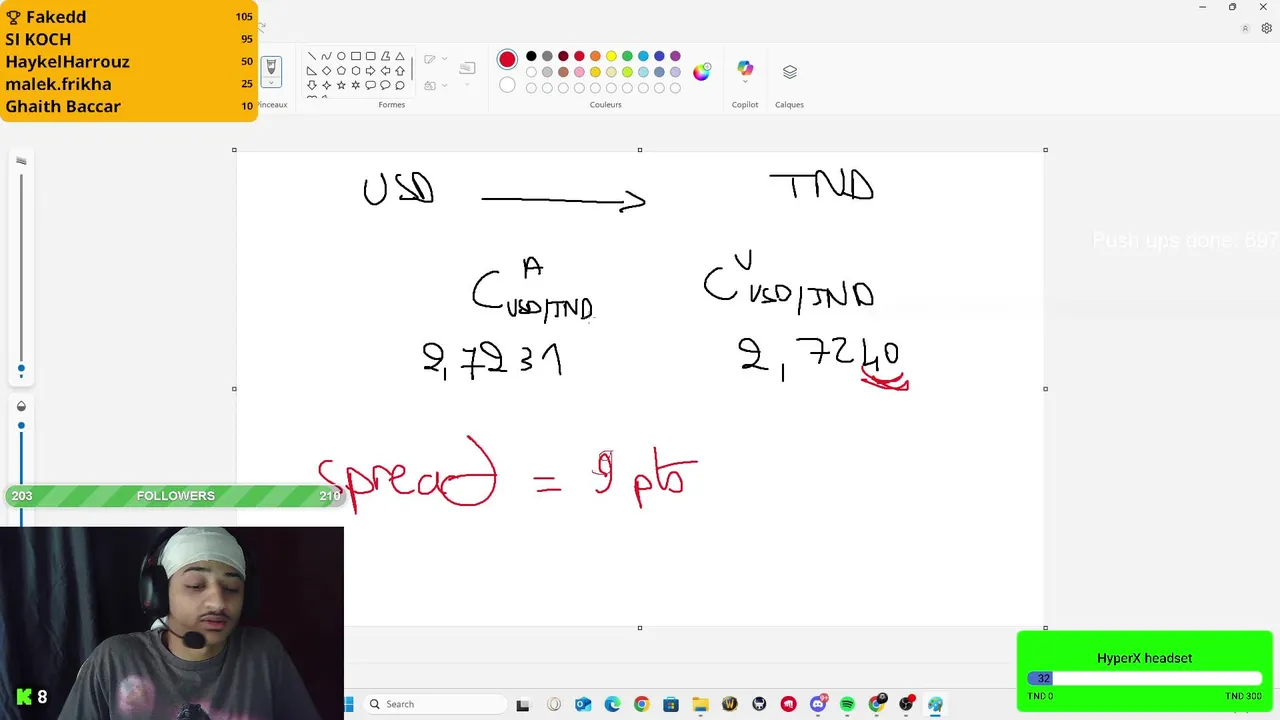 Fakedd 105
SI KOCH 95
HaykelHarrouz 50
malek.frikha 25
Ghaith Baccar 10
Pinceaux
Formes
Couleurs
Copilot
Calques
USD → TND
C A USD/TND
C V USD/TND
2,7231
2,7240
Push ups done: 697
Spread = 9 pts
203 FOLLOWERS 210
K 8
HyperX headset
32
TND 0 TND 300
Search